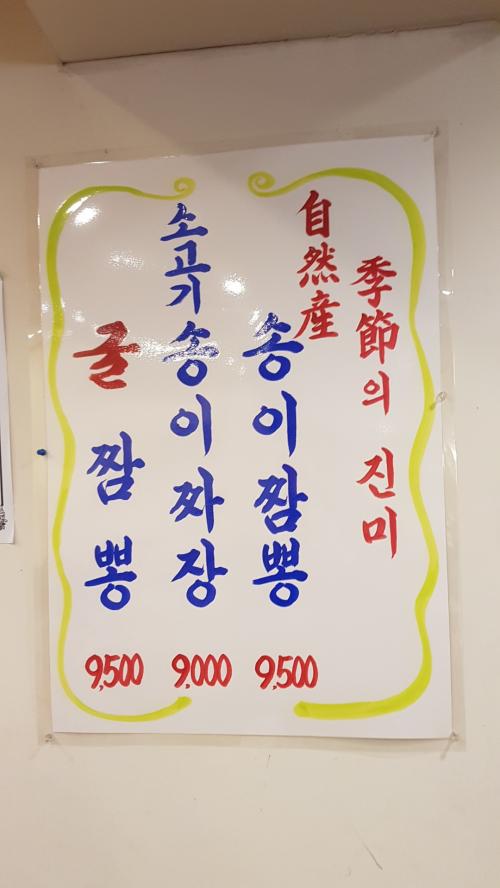 季節의 진미
自然産
송이짬뽕
9,500
소고기
송이짜장
9,000
굴 짬뽕
9,500